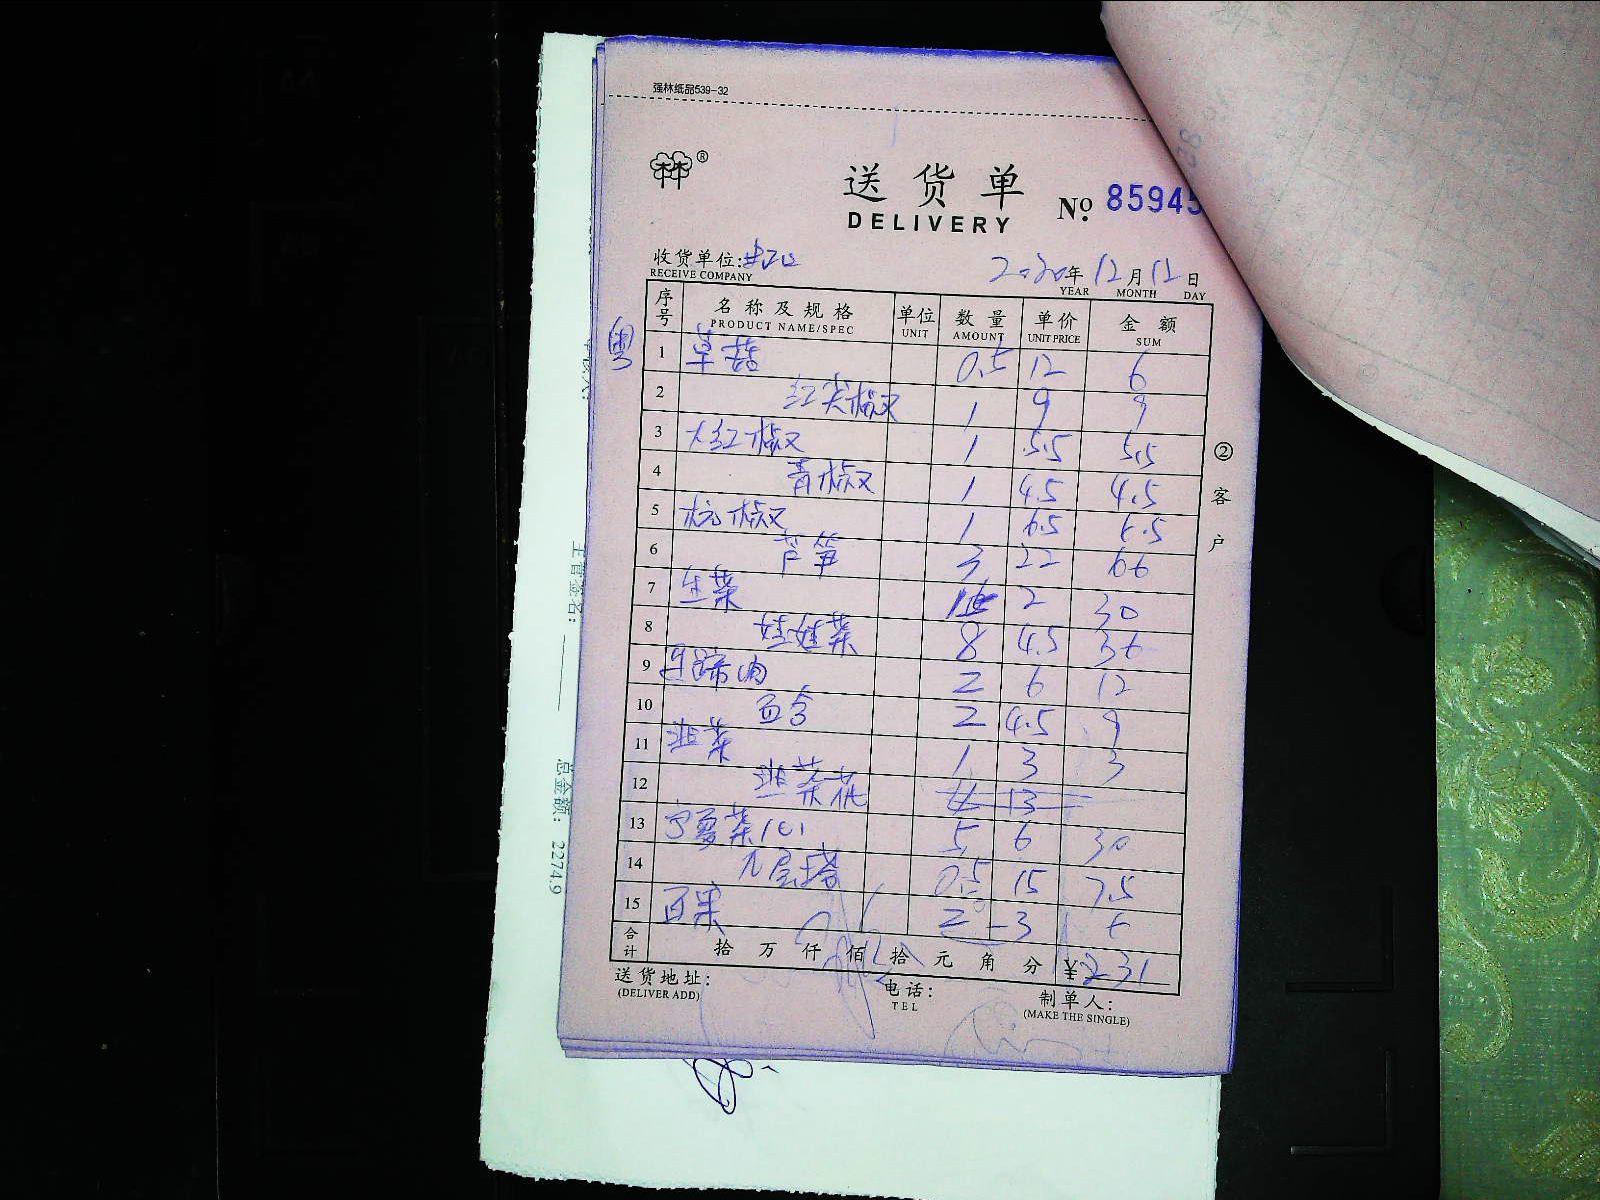 强林纸品539-32
林林®
送货单
DELIVERY
№ 85945
收货单位:
RECEIVE COMPANY
2020年12月12日
YEAR MONTH DAY
序号 名称及规格 单位 数量 单价 金额
PRODUCT NAME/SPEC UNIT AMOUNT UNIT PRICE SUM
粤
1 草菇 0.5 12 6
2 红尖椒 1 9 9
3 大红椒 1 5.5 5.5
4 青椒 1 4.5 4.5
5 杭椒 1 6.5 6.5
6 芦笋 3 22 66
7 生菜 2 30
8 娃娃菜 8 4.5 36
9 2 6 12
10 百合 2 4.5 9
11 韭菜 1 3 3
12 韭菜花 4 13
13 宁夏菜心 5 6 30
14 九层塔 0.5 15 7.5
15 2 3 6
合计 拾万仟佰拾元角分 ¥231
送货地址:
(DELIVER ADD)
电话:
TEL
制单人:
(MAKE THE SINGLE)
②客户
主管签名:
总金额: 2274.9